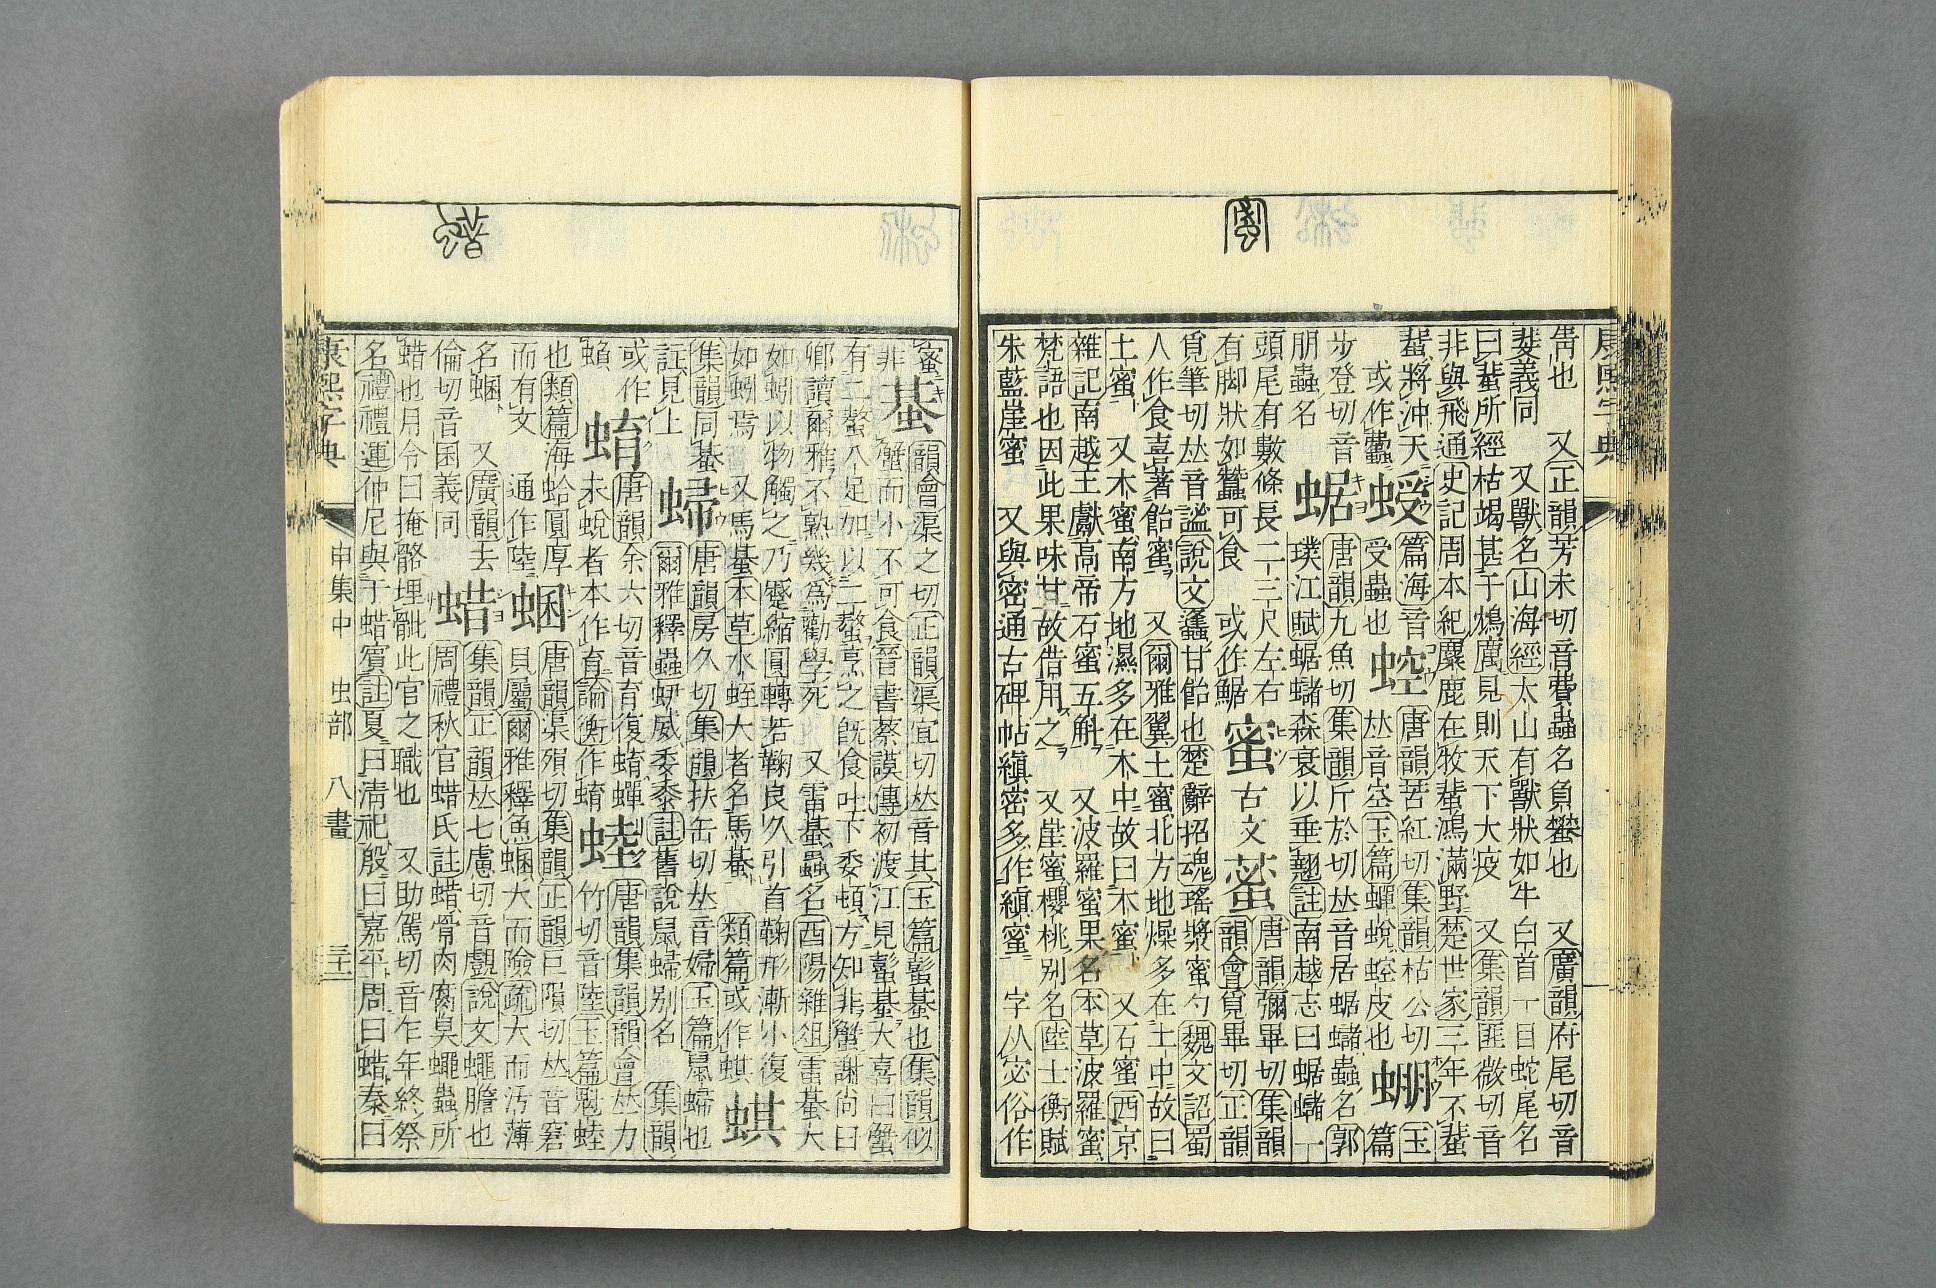 甾也 又正韻芳未切音費蟲名負蠜也 又廣韻府尾切音
蜚義同 又獸名山海經太山有獸狀如牛白首一目蛇尾名
曰蜚所經枯竭甚于鴆厲見則天下大疫 又集韻匪微切音
非與飛通史記周本紀麋鹿在牧蜚鴻滿野楚世家三年不蜚
蜚將沖天 䖟 篇海音 受蟲也 蛵 唐韻苦紅切集韻枯公切
或作蠹 𠀤音空玉篇蟬蛻蛵皮也 蜅 玉篇
步登切音朋蟲名 蜛 唐韻九魚切集韻斤於切𠀤音居蜛蠩蟲名郭
璞江賦蜛蠩森衰以垂翹註南越志曰蜛蠩一
頭尾有數條長二三尺左右
有脚狀如蠶可食 或作䱟 蜜 古文 䖸 唐韻彌畢切集韻
韻會覓畢切正韻
覓筆切𠀤音謐說文蠭甘飴也楚辭招魂瑤漿蜜勺魏文詔蜀
人作食喜著飴蜜 又爾雅翼土蜜北方地燥多在土中故曰
土蜜 又木蜜南方地濕多在木中故曰木蜜 又石蜜西京
雜記南越王獻高帝石蜜五斛 又波羅蜜果名本草波羅蜜
梵語也因此果味甘故借用之 又崖蜜櫻桃別名陸士衡賦
朱藍崖蜜 又與密通古碑帖縝密多作縝蜜 字从宓俗作
蜜非 蜝 韻會渠之切正韻渠宜切𠀤音其玉篇蟛蜝也集韻似
蟹而小不可食晉書蔡謨傳初渡江見蟛蜝大喜曰蟹
有二螯八足加以二螯烹之旣食吐下委頓方知非蟹謝尚曰
卿讀爾雅不熟幾爲勸學死 又雷蜝蟲名酉陽雜俎雷蜝大
如蚓以物觸之乃蹙縮圓轉若鞠良久引首鞠形漸小復
如蚓焉 又馬蜝本草水蛭大者名馬蜝 類篇或作蜞 蜞
集韻同蜝 䗗 唐韻房久切集韻扶缶切𠀤音婦玉篇鼠䗗也
註見上 爾雅釋蟲蚜威委黍註舊說鼠䗗別名 集韻
或作蝜 蜟 唐韻余六切音育復蜟蟬
未蛻者本作育論衡作蜟 蜦 唐韻集韻韻會𠀤力
竹切音陸玉篇魁蜦
也類篇海蛤圓厚
而有文 通作陸 蜠 唐韻渠殞切集韻正韻巨隕切𠀤音窘
貝屬爾雅釋魚蜠大而險疏大而汚薄
名蜠 又廣韻去
倫切音囷義同 蜡 集韻正韻𠀤七慮切音覰說文蠅膽也
周禮秋官蜡氏註蜡骨肉腐臭蠅蟲所
蜡也月令曰掩骼埋骴此官之職也 又助駕切音乍年終祭
名禮禮運仲尼與于蜡賓註夏曰淸祀殷曰嘉平周曰蜡秦曰
康熙字典 申集中 虫部 八畫